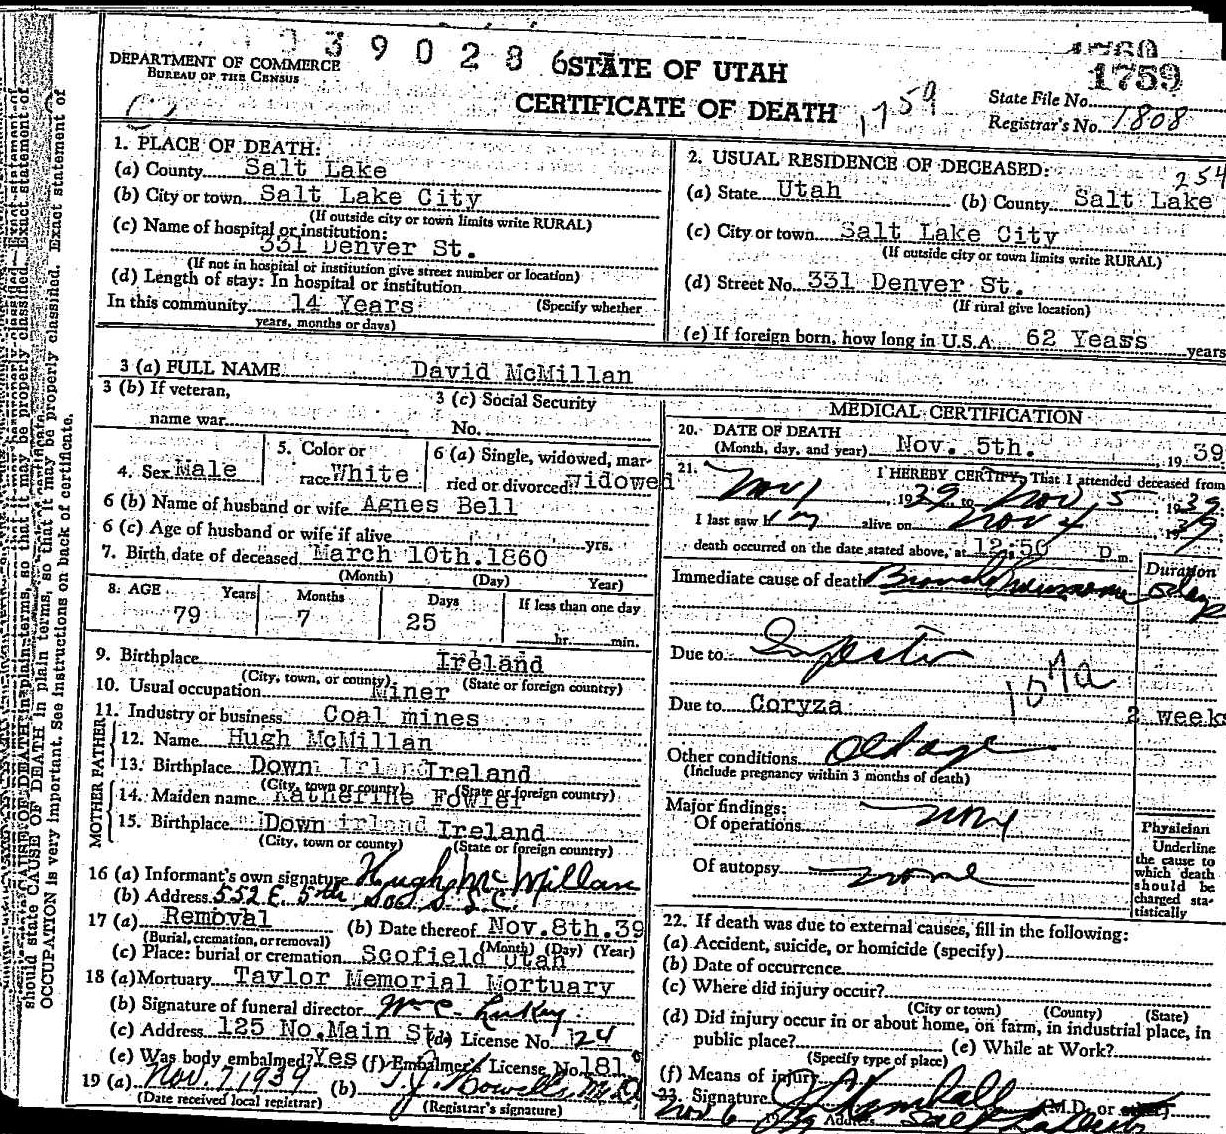 39028 6 STATE OF UTAH
1760
1759
DEPARTMENT OF COMMERCE
BUREAU OF THE CENSUS
CERTIFICATE OF DEATH 1759
State File No.
Registrar's No. 1808
1. PLACE OF DEATH:
(a) County Salt Lake
(b) City or town Salt Lake City
(If outside city or town limits write RURAL)
(c) Name of hospital or institution:
331 Denver St.
(If not in hospital or institution give street number or location)
(d) Length of stay: In hospital or institution
In this community 14 Years (Specify whether
years, months or days)
2. USUAL RESIDENCE OF DECEASED:
254
(a) State Utah (b) County Salt Lake
(c) City or town Salt Lake City
(If outside city or town limits write RURAL)
(d) Street No. 331 Denver St.
(If rural give location)
(e) If foreign born, how long in U.S.A. 62 Years years
3 (a) FULL NAME David McMillan
3 (b) If veteran,
name war
3 (c) Social Security
No.
4. Sex Male
5. Color or
race White
6 (a) Single, widowed, mar-
ried or divorced widowed
6 (b) Name of husband or wife Agnes Bell
6 (c) Age of husband or wife if alive yrs.
7. Birth date of deceased March 10th.1860
(Month) (Day) Year)
8. AGE Years Months Days If less than one day
79 7 25 hr. min.
9. Birthplace Ireland
(City, town, or county) (State or foreign country)
10. Usual occupation Miner
11. Industry or business Coal mines
FATHER
12. Name Hugh McMillan
13. Birthplace Down Irland Ireland
(City, town or county) (State or foreign country)
MOTHER
14. Maiden name Katherine Fowler
15. Birthplace Down irland Ireland
(City, town or county) (State or foreign country)
16 (a) Informant's own signature Hugh McMillan
(b) Address 552 E. 5th So. S.L.C.
17 (a) Removal (b) Date thereof Nov.8th.39
(Burial, cremation, or removal) (Month) (Day) (Year)
(c) Place: burial or cremation Scofield Utah
18 (a) Mortuary Taylor Memorial Mortuary
(b) Signature of funeral director
(c) Address 125 No.Main St. (d) License No. 124
(e) Was body embalmed? Yes (f) Embalmer's License No. 181
19 (a) Nov. 7, 1939 (b) T.J. Howells M.D.
(Date received local registrar) (Registrar's signature)
MEDICAL CERTIFICATION
20. DATE OF DEATH
(Month, day, and year) Nov. 5th. 19 39
21. I HEREBY CERTIFY, That I attended deceased from
Nov 1 1939 to Nov 5 1939.
I last saw him alive on Nov 4 1939.
death occurred on the date stated above, at 12:50 P m.
Duration
Immediate cause of death Broncho Pneumonia 5 days
Due to
107a
Due to Coryza 2 weeks
Other conditions Old age
(Include pregnancy within 3 months of death)
Major findings:
Of operations none
Of autopsy none
Physician
Underline
the cause to
which death
should be
charged sta-
tistically
22. If death was due to external causes, fill in the following:
(a) Accident, suicide, or homicide (specify)
(b) Date of occurrence
(c) Where did injury occur?
(City or town) (County) (State)
(d) Did injury occur in or about home, on farm, in industrial place, in
public place? (e) While at Work?
(Specify type of place)
(f) Means of injury
23. Signature Kimball (M.D. or other)
Nov 6 39 Address Salt Lake City
should state CAUSE OF DEATH in plain terms, so that it may be properly classified. Exact statement of
OCCUPATION is very important. See instructions on back of certificate.